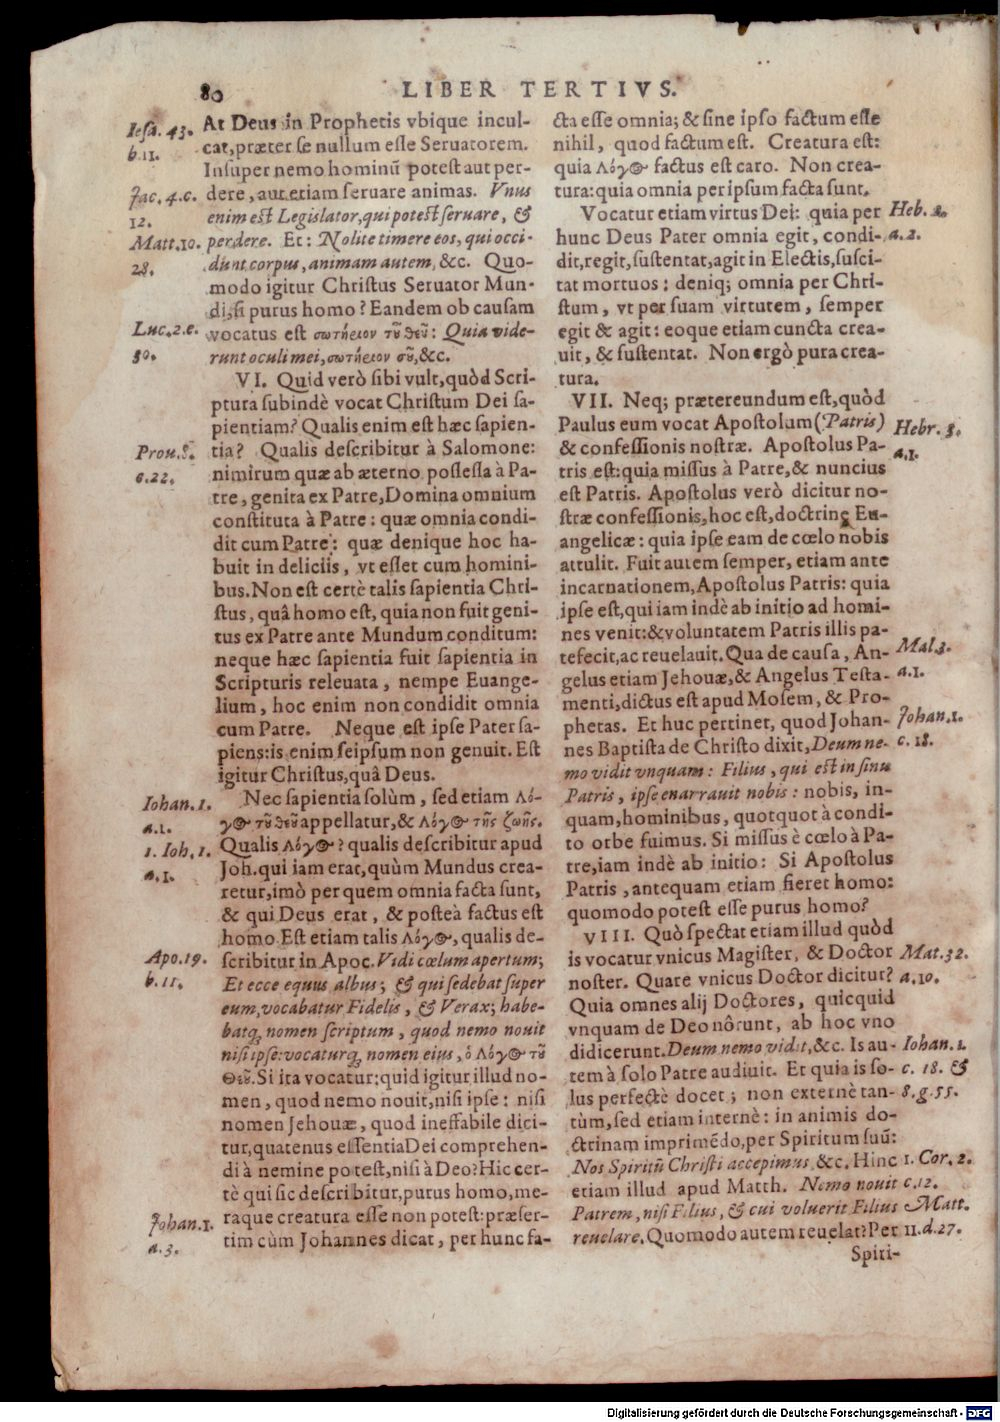 80
LIBER TERTIVS.
Iesa. 43.
b. 11.
Jac. 4. c.
12.
Matt. 10.
28.
Luc. 2. e.
30.
Prou. 8.
c. 22.
Iohan. 1.
a. 1.
1. Ioh. 1.
a. 1.
Apo. 19.
b. 11.
Johan. 1.
a. 3.
At Deus in Prophetis vbique incul-
cat, præter se nullum esse Seruatorem.
Insuper nemo hominũ potest aut per-
dere, aut etiam seruare animas. Vnus
enim est Legislator, qui potest seruare, &
perdere. Et: Nolite timere eos, qui occi-
dunt corpus, animam autem, &c. Quo-
modo igitur Christus Seruator Mun-
di, si purus homo? Eandem ob causam
vocatus est σωτήριον τοῦ θεοῦ: Quia vide-
runt oculi mei, σωτήριον σοῦ, &c.
VI. Quid verò sibi vult, quòd Scri-
ptura subindè vocat Christum Dei sa-
pientiam? Qualis enim est hæc sapien-
tia? Qualis describitur à Salomone:
nimirum quæ ab æterno possessa à Pa-
tre, genita ex Patre, Domina omnium
constituta à Patre: quæ omnia condi-
dit cum Patre: quæ denique hoc ha-
buit in deliciis, vt esset cum homini-
bus. Non est certè talis sapientia Chri-
stus, quâ homo est, quia non fuit geni-
tus ex Patre ante Mundum conditum:
neque hæc sapientia fuit sapientia in
Scripturis releuata, nempe Euange-
lium, hoc enim non condidit omnia
cum Patre. Neque est ipse Pater sa-
piens: is enim seipsum non genuit. Est
igitur Christus, quâ Deus.
Nec sapientia solùm, sed etiam Λό-
γος τοῦ θεοῦ appellatur, & Λόγος τῆς ζωῆς.
Qualis Λόγος? qualis describitur apud
Joh. qui iam erat, quùm Mundus crea-
retur, imò per quem omnia facta sunt,
& qui Deus erat, & posteà factus est
homo. Est etiam talis Λόγος, qualis de-
scribitur in Apoc. Vidi cœlum apertum;
Et ecce equus albus; & qui sedebat super
eum, vocabatur Fidelis, & Verax; habe-
batq́; nomen scriptum, quod nemo nouit
nisi ipse: vocaturq́; nomen eius, ὁ Λόγος τοῦ
Θεοῦ. Si ita vocatur: quid igitur illud no-
men, quod nemo nouit, nisi ipse: nisi
nomen Jehouæ, quod ineffabile dici-
tur, quatenus essentia Dei comprehen-
di à nemine potest, nisi à Deo? Hic cer-
tè qui sic describitur, purus homo, me-
raque creatura esse non potest: præser-
tim cùm Johannes dicat, per hunc fa-
cta esse omnia; & sine ipso factum esse
nihil, quod factum est. Creatura est:
quia Λόγος factus est caro. Non crea-
tura: quia omnia per ipsum facta sunt.
Vocatur etiam virtus Dei: quia per
hunc Deus Pater omnia egit, condi-
dit, regit, sustentat, agit in Electis, susci-
tat mortuos: deniq; omnia per Chri-
stum, vt per suam virtutem, semper
egit & agit: eoque etiam cuncta crea-
uit, & sustentat. Non ergò pura crea-
tura.
VII. Neq; prætereundum est, quòd
Paulus eum vocat Apostolum (Patris)
& confessionis nostræ. Apostolus Pa-
tris est: quia missus à Patre, & nuncius
est Patris. Apostolus verò dicitur no-
stræ confessionis, hoc est, doctrinę Eu-
angelicæ: quia ipse eam de cœlo nobis
attulit. Fuit autem semper, etiam ante
incarnationem, Apostolus Patris: quia
ipse est, qui iam indè ab initio ad homi-
nes venit: & voluntatem Patris illis pa-
tefecit, ac reuelauit. Qua de causa, An-
gelus etiam Jehouæ, & Angelus Testa-
menti, dictus est apud Mosem, & Pro-
phetas. Et huc pertinet, quod Johan-
nes Baptista de Christo dixit, Deum ne-
mo vidit vnquam: Filius, qui est in sinu
Patris, ipse enarrauit nobis: nobis, in-
quam, hominibus, quotquot à condi-
to orbe fuimus. Si missus è cœlo à Pa-
tre, iam indè ab initio: Si Apostolus
Patris, antequam etiam fieret homo:
quomodo potest esse purus homo?
VIII. Quò spectat etiam illud quòd
is vocatur vnicus Magister, & Doctor
noster. Quare vnicus Doctor dicitur?
Quia omnes alij Doctores, quicquid
vnquam de Deo nôrunt, ab hoc vno
didicerunt. Deum nemo vidit, &c. Is au-
tem à solo Patre audiuit. Et quia is so-
lus perfectè docet; non externè tan-
tùm, sed etiam internè: in animis do-
ctrinam imprimẽdo, per Spiritum suũ:
Nos Spiritũ Christi accepimus &c. Hinc
etiam illud apud Matth. Nemo nouit
Patrem, nisi Filius, & cui voluerit Filius
reuelare. Quomodo autem reuelat? Per
Spiri-
Heb. 2.
a. 2.
Hebr. 3.
a. 1.
Mal. 3.
a. 1.
Johan. 1.
c. 18.
Mat. 32.
a. 10.
Iohan. 1.
c. 18. &
8. g. 55.
1. Cor. 2.
c. 12.
Matt.
11. d. 27.
Digitalisierung gefördert durch die Deutsche Forschungsgemeinschaft - DFG